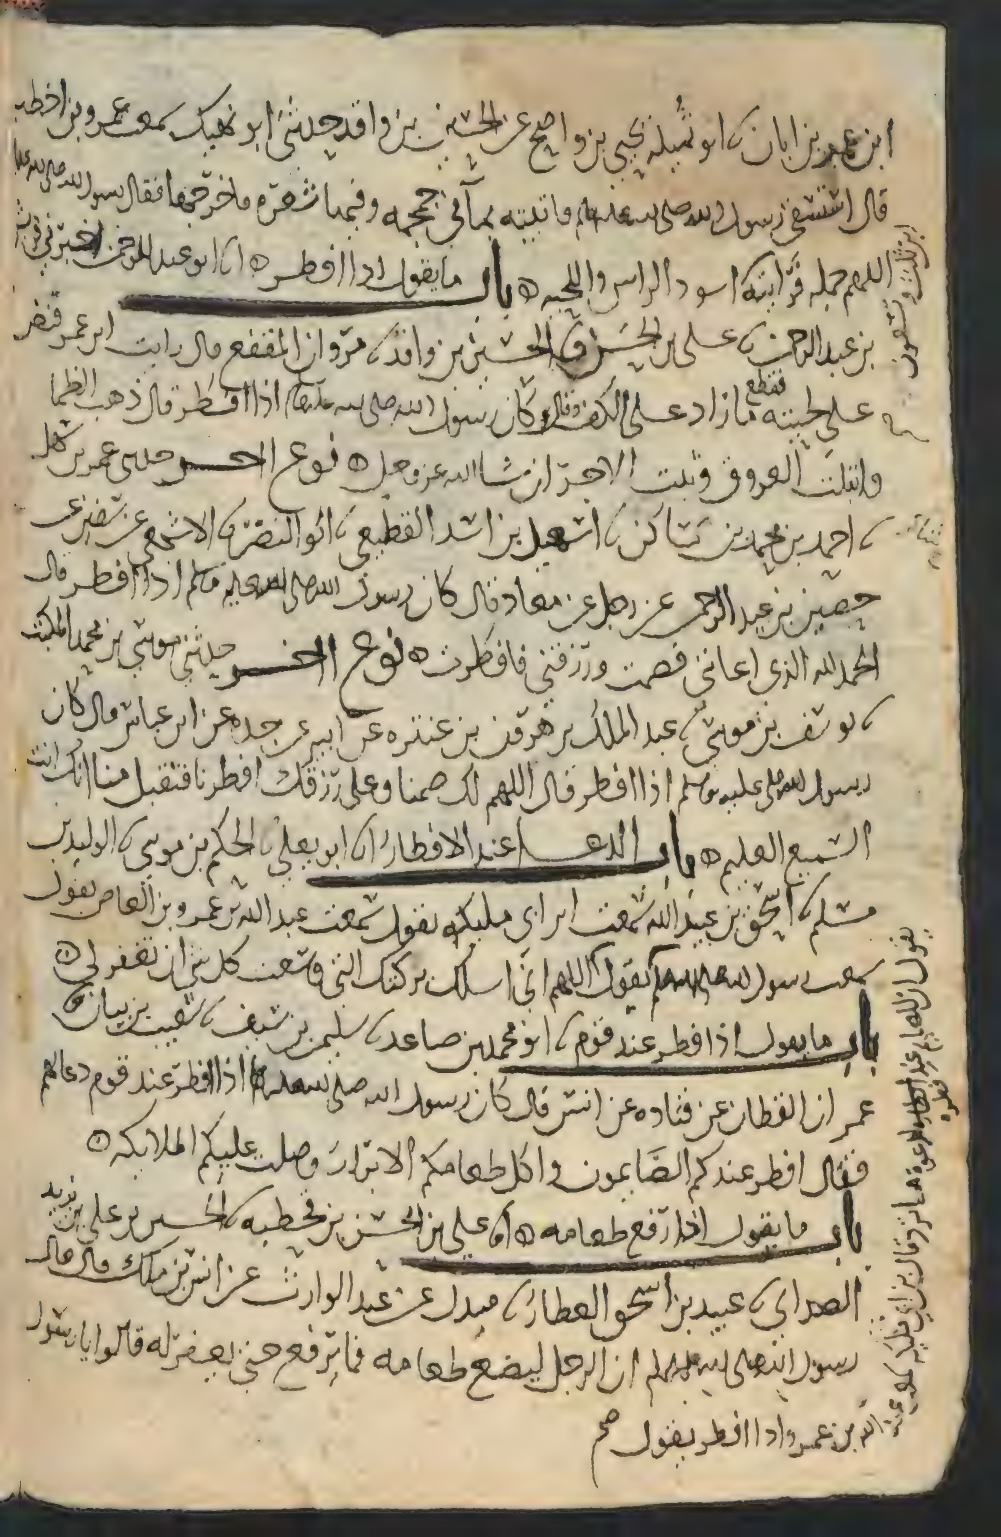 ابن عمر بن ابان نا ابو تميلة يحيى بن واضح عن الحسين بن واقد حدثني ابو نهيك سمعت عمرو بن اخطب
قال استسقى رسول الله صلى الله عليه وسلم فاتيته بماء في جمجمه وفيها شعره فاخرجتها فقال رسول الله صلى الله عليه
اللهم جمله فرايته اسود الراس واللحيه ه باب ما يقول اذا افطر ه انا ابو عبد الرحمن اخبرني قريش
بن عبد الرحمن نا علي بن الحسن نا الحسين بن واقد نا مروان المقفع قال رايت ابن عمر قبض
على لحيته فقطع ما زاد على الكف وقال كان رسول الله صلى الله عليه وسلم اذا افطر قال ذهب الظما
وابتلت العروق وثبت الاجر ان شا الله عز وجل ه نوع اخر حدثني عمر بن سهل
نا احمد بن محمد بن شاكر نا اسمعيل بن اسد القطيعي نا ابو النضر نا الاشجعي عن سفين عن
حصين بن عبد الرحمن عن رجل عن معاذ قال كان رسول الله صلى الله عليه وسلم اذا افطر قال
الحمد لله الذي اعانني فصمت ورزقني فافطرت ه نوع اخر حدثني موسى بن محمد المكتب
نا يوسف بن موسى نا عبد الملك بن هرون بن عنتره عن ابيه عن جده عن ابن عباس قال كان
رسول الله صلى عليه وسلم اذا افطر قال اللهم لك صمنا وعلى رزقك افطرنا فتقبل منا انك انت
السميع العليم ه باب الدعا عند الافطار انا ابو يعلى نا الحكم بن موسى نا الوليد بن
مسلم نا اسحق بن عبيد الله سمعت ابن ابي مليكه يقول سمعت عبد الله بن عمرو بن العاص يقول
سمعت رسول الله صلى الله عليه وسلم يقول اللهم اني اسلك برحمتك التي وسعت كل شي ان تغفر لي ه
باب ما يقول اذا افطر عند قوم نا ابو محمد بن صاعد نا سليمن بن سيف نا شعيب بن بيان نا
عمران القطان عن قتاده عن انس قال كان رسول الله صلى الله عليه وسلم اذا افطر عند قوم دعا لهم
فقال افطر عندكم الصايمون واكل طعامكم الابرار وصلت عليكم الملايكه ه
باب ما يقول اذا رفع طعامه ه انا علي بن الحسن بن قحطبه نا الحسين بن علي بن يزيد
الصداي نا عبيد بن اسحق العطار نا مندل عن عبد الوارث عن انس بن ملك قال قال
رسول الله صلى الله عليه وسلم ان الرجل ليضع طعامه فما يرفع حتى يغفر له قالوا يا رسول
ابن ثلث وتسعون
يقول ان للصايم عند فطره لدعوة ما ترد قال ابن ابي مليكه سمعت عبد
الله بن عمرو اذا افطر يقول صح